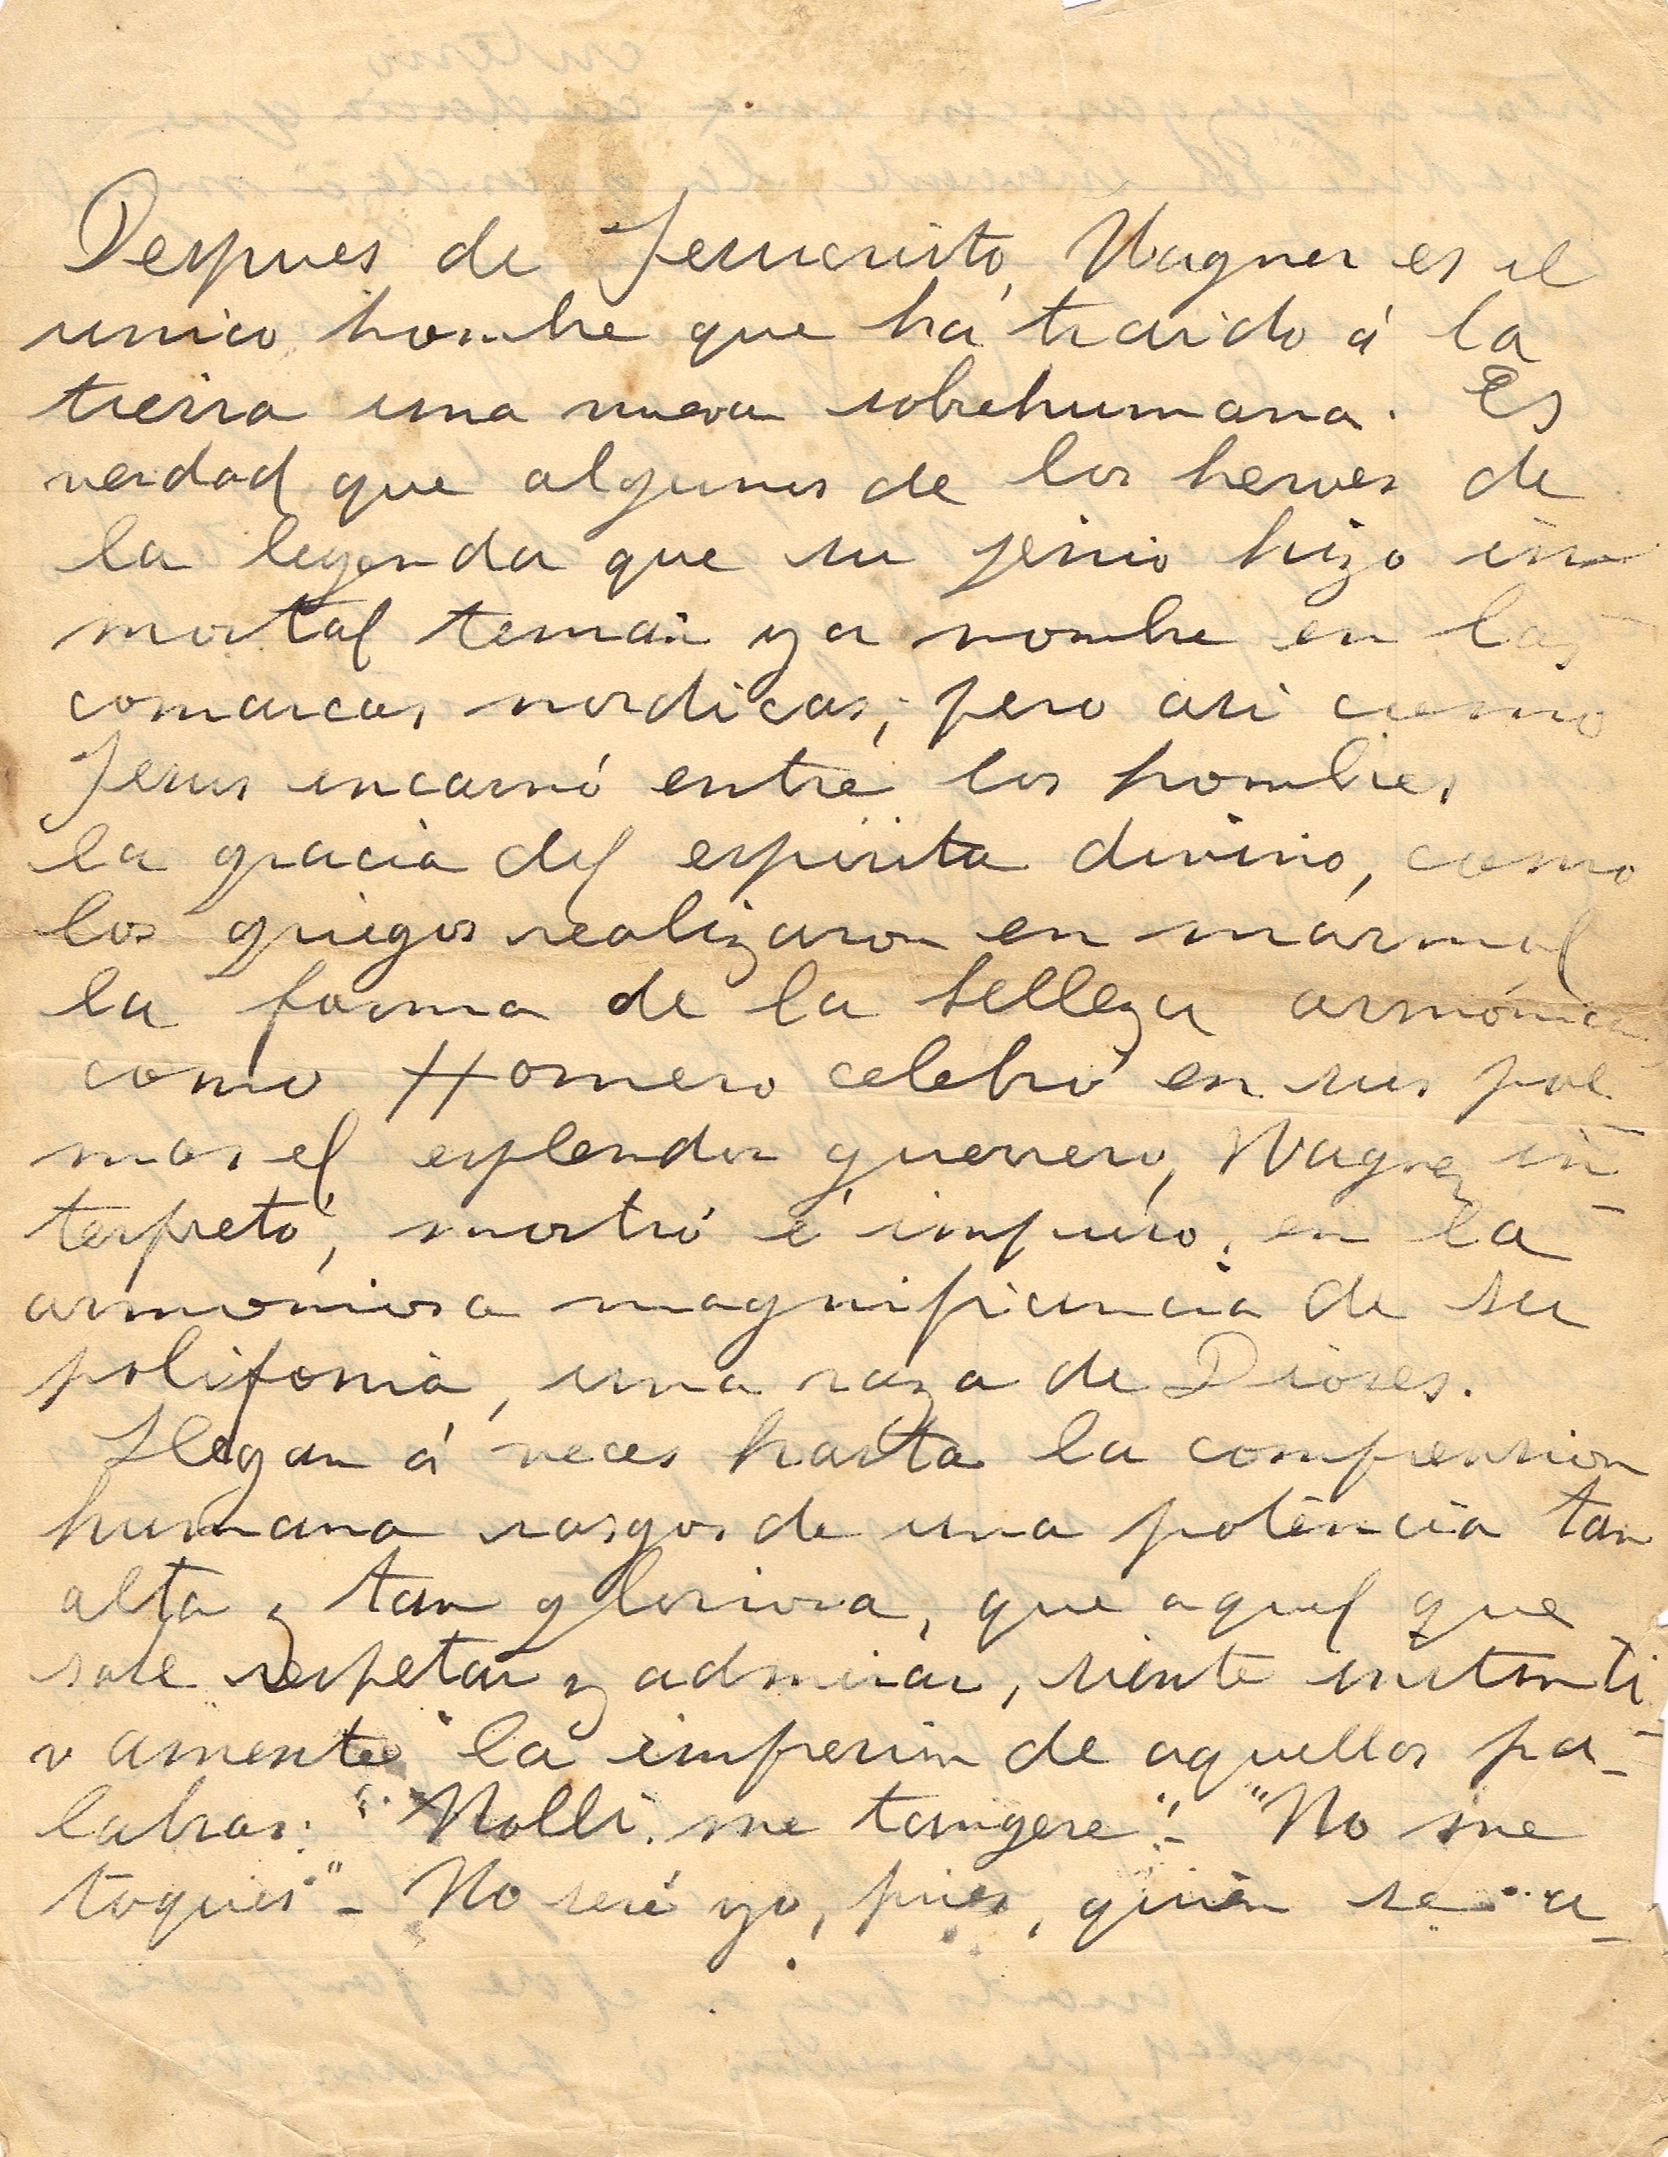 Despues de Jesucristo, Wagner es el
unico hombre que ha traido á la
tierra una nueva sobrehumana. Es
verdad que algunos de los heroes de
la leyenda que su jenio hizo in
mortal tenian ya nombre en las
comarcas nordicas; pero asi como
Jesus encarnó entre los hombres
la gracia del espiritu divino, como
los griegos realizaron en marmol
la forma de la belleza armónica
como Homero celebró en sus poe-
mas el esplendor guerrero, Wagner in-
terpretó, mostró é impuso, en la
armoniosa magnificencia de su
polifonia, una raza de Dioses.
Llegan á veces hasta la comprension
humana rasgos de una potencia tan
alta y tan gloriosa, que aquel que
sabe respetar y admirar, siente instinti
vamente la impresion de aquellas pa-
labras: "Nolli me tangere" - "No me
toques" - No seré yo, pues, quien se a-